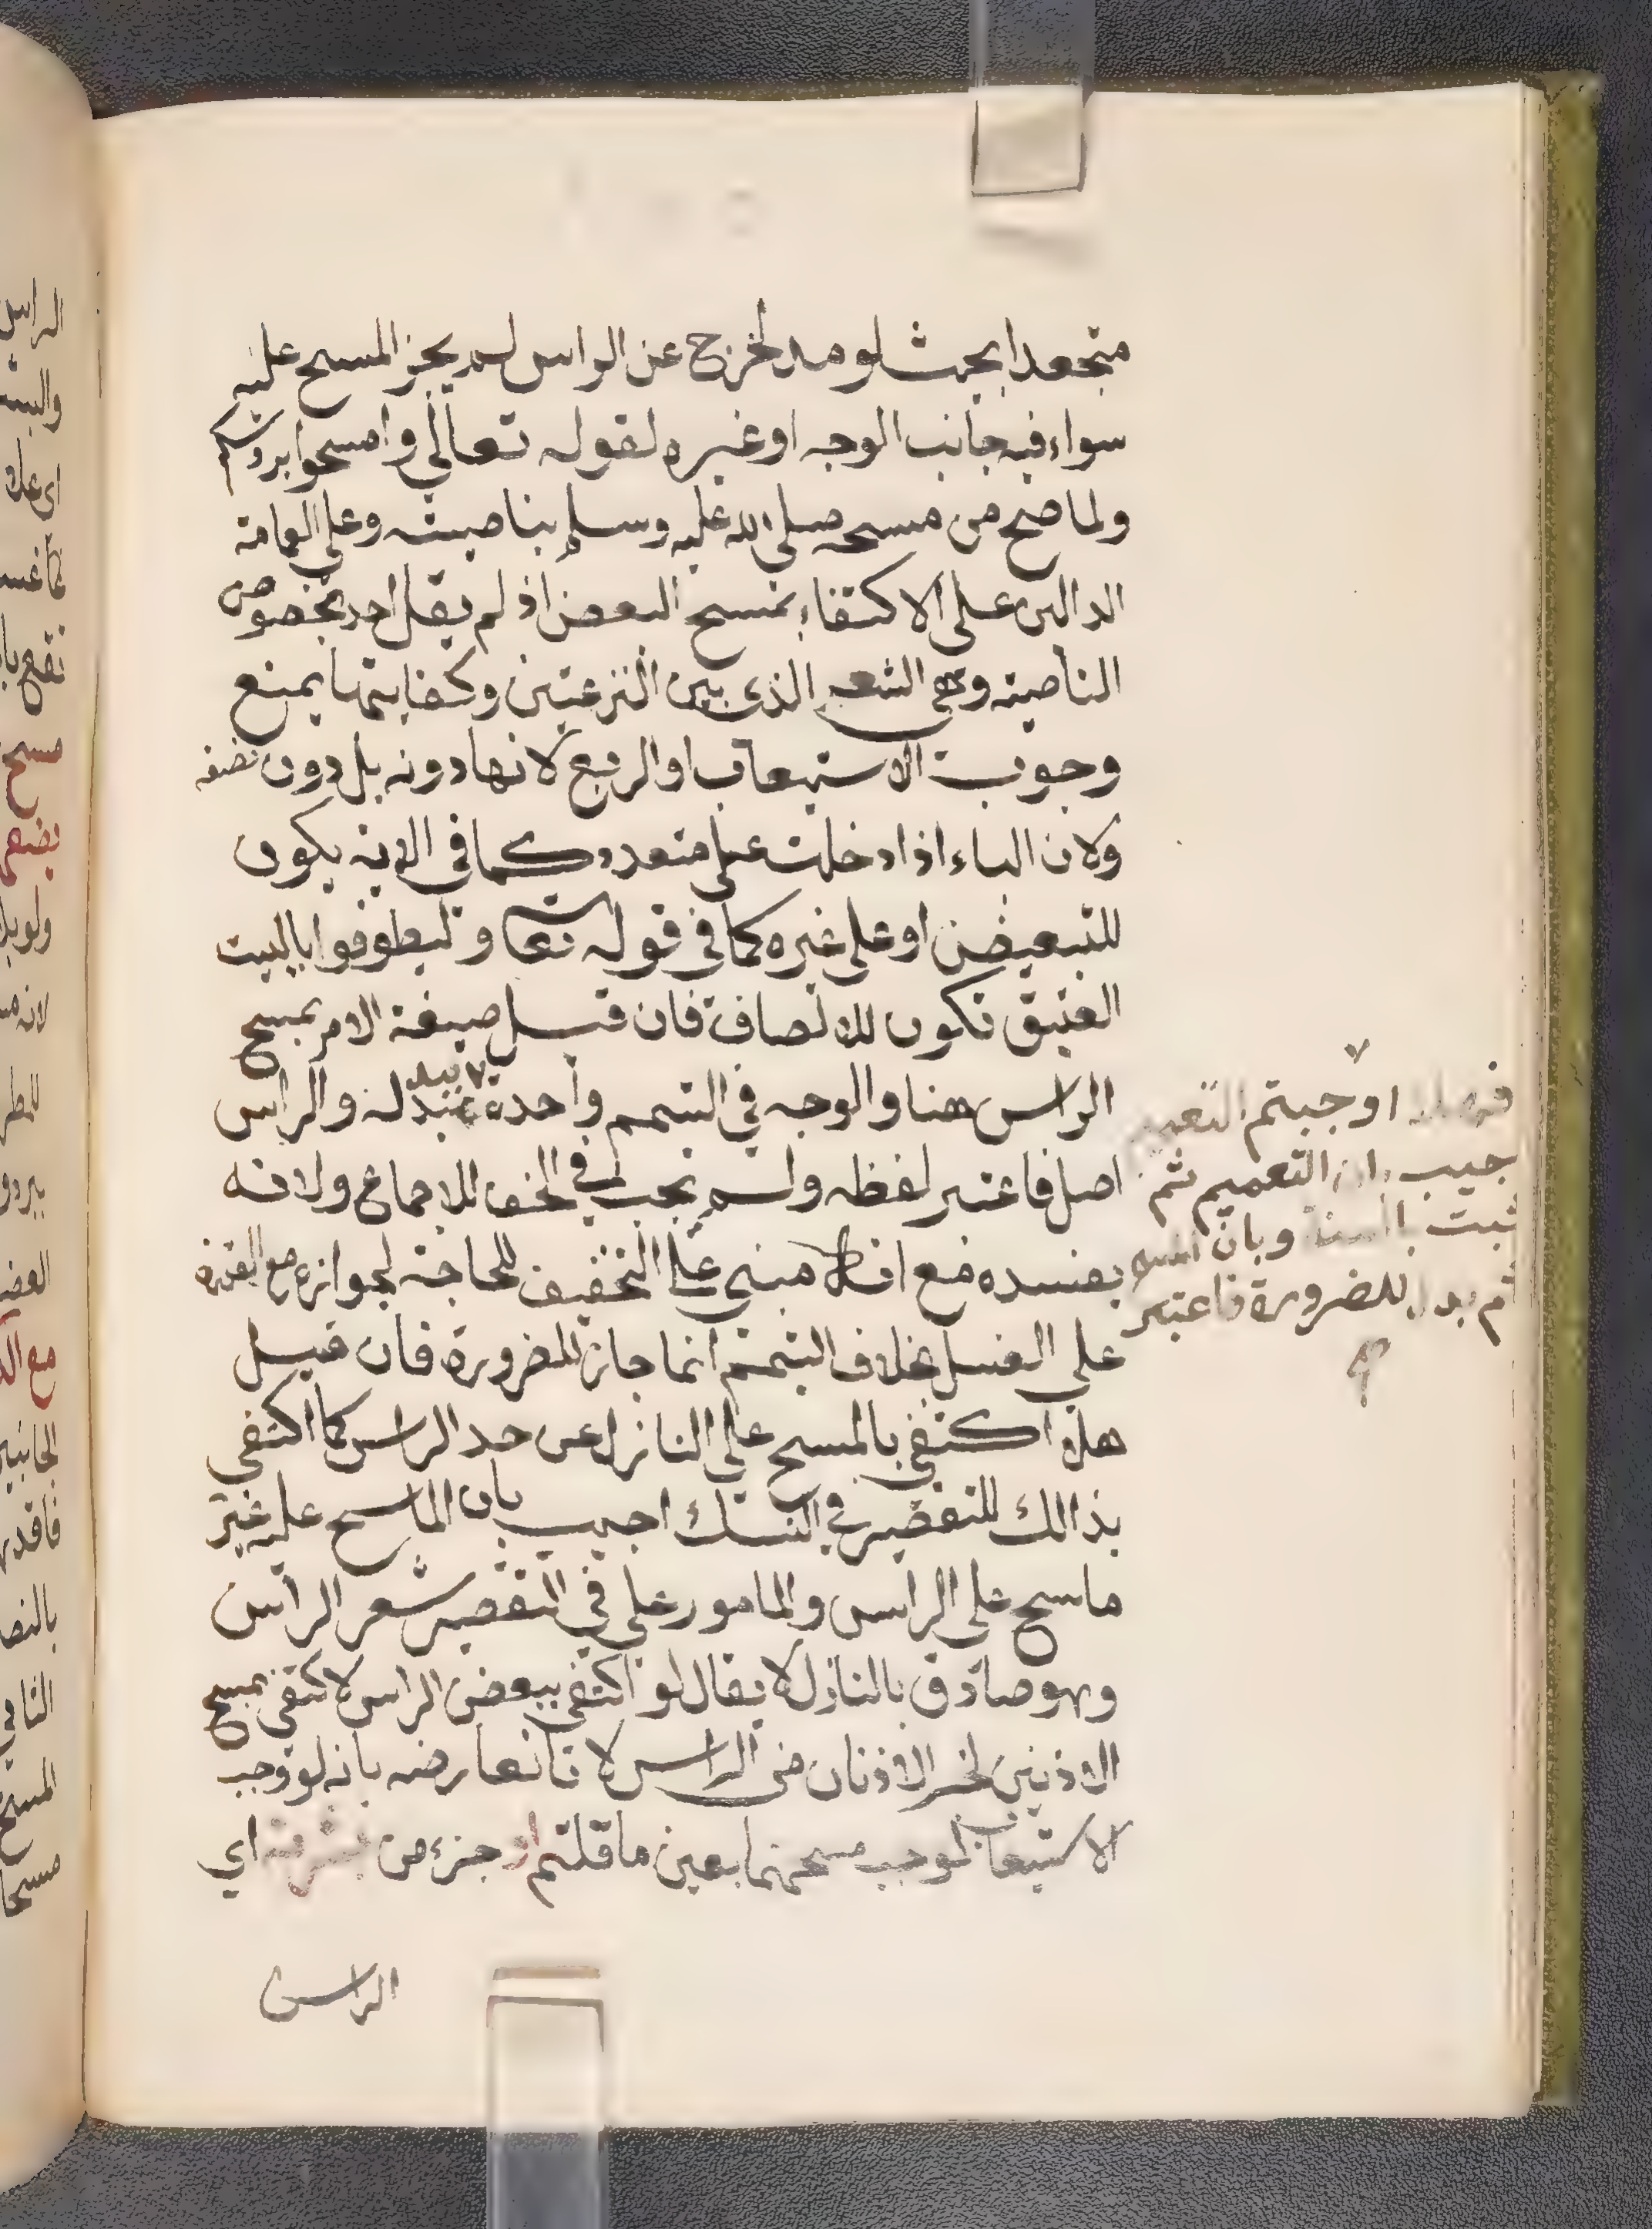 متجعدا بحيث لو مد لخرج عن الراس لم يجز المسح عليه
سواء فيه جانب الوجه او غيره لقوله تعالى وامسحوا برؤسكم
ولما صح من مسحه صلى الله عليه وسلم بناصيته وعلى العمامة
الدالين على الاكتفاء بمسح البعض اذ لم يقل احد بخصوص
الناصية وهى الشعر الذى بين النزعتين وكفايتها يمنع
وجوب الاستيعاب او الربع لانها دونه بل دون نصفه
ولان الباء اذا دخلت على متعدد كما فى الاية يكون
للتبعيض او على غيره كما فى قوله تعا وليطوفوا بالبيت
العتيق تكون للالصاق فان قيل صيغة الامر بمسح
الراس هنا والوجه في التيمم واحدة والراس
اصل فاعتبر لفظه ولم يجب في الخف للاجماع ولانه
يفسده مع انه مبنى على التخفيف للحاجة لجوازه مع القدرة
على الغسل بخلاف التيمم انما جاز للضرورة فان قيل
هلا اكتفى بالمسح على النازل عن حد الراس كما اكتفى
بذالك للتقصير في النسك اجيب بان الماسح عليه غير
ماسح على الراس والمامور على في التقصير شعر الراس
وهو صادق بالنازل لا يقال لو اكتفى ببعض الراس لاكتفى بمسح
الاذنين لخبر الاذنان من الراس لانا نعارضه بانه لو وجب
الاستيعاب لوجب مسحهما بعين ما قلتم او جزء من بشرته اي
الراس
اوجبتم
جيب بان التعميم ثم
ثبت بالسنة وبان
ثم بدل للضرورة فاعتبر